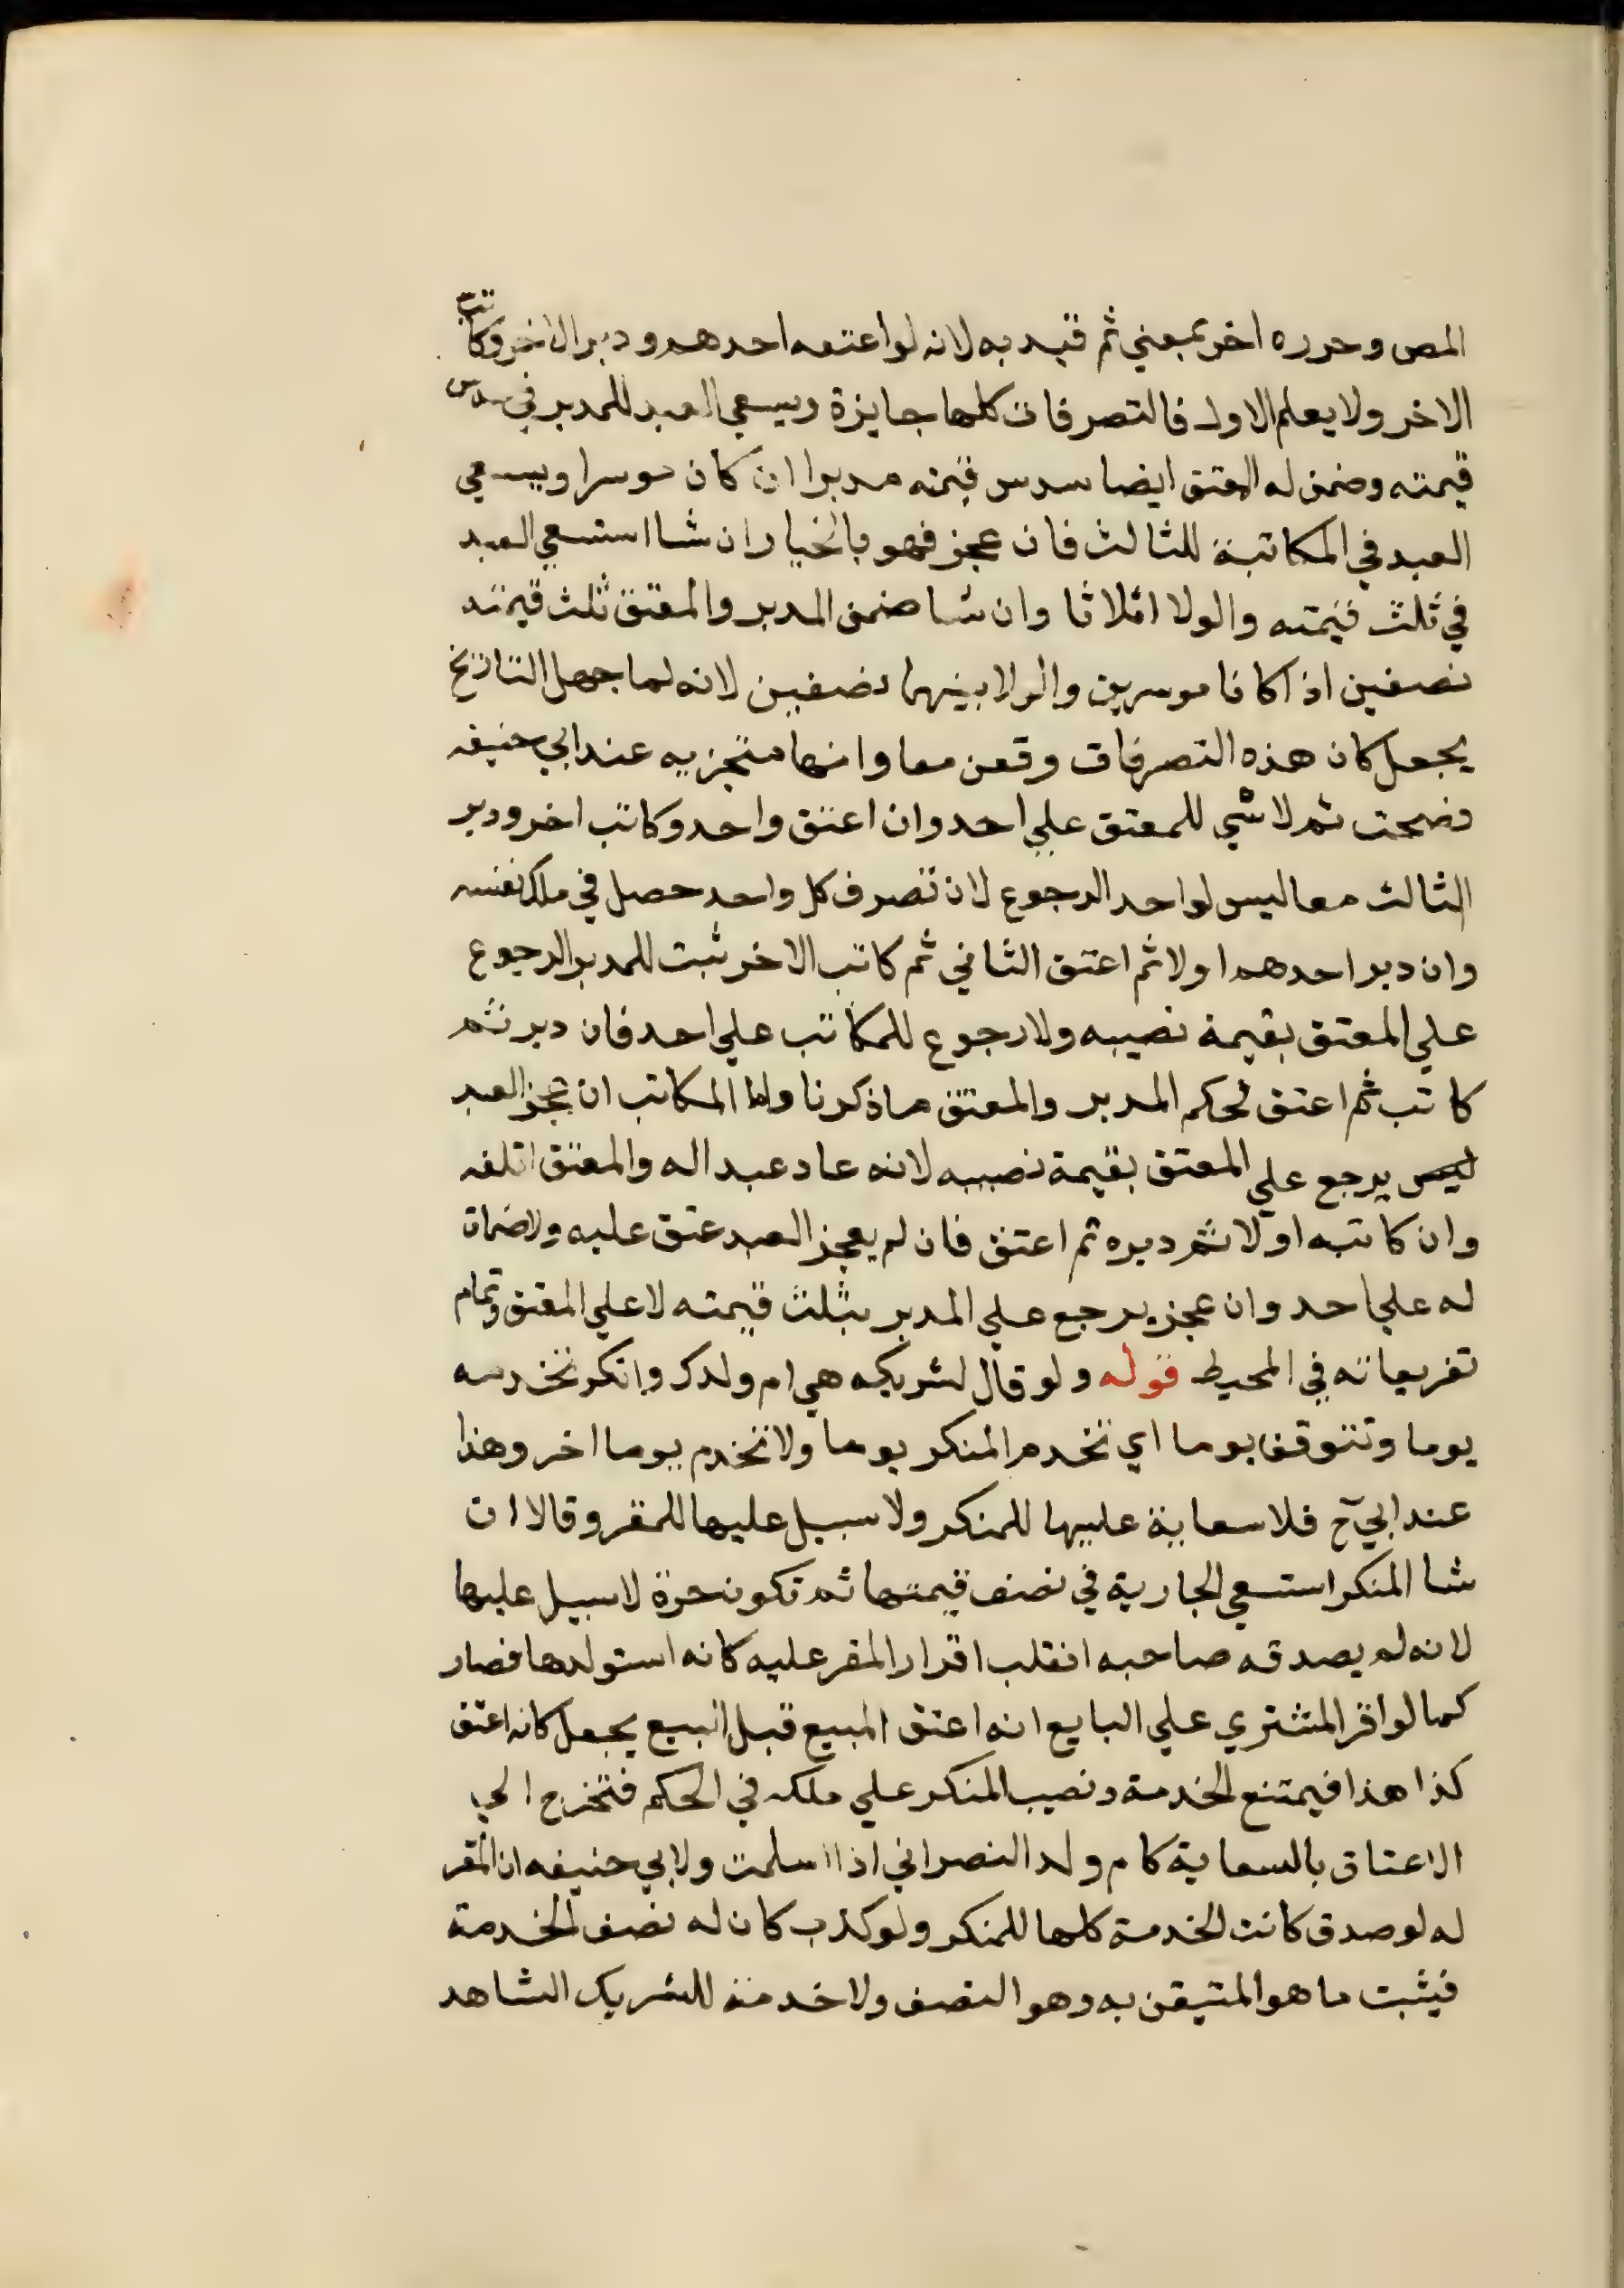 المص وحرره اخر بمعني ثم قيد به لانه لو اعتقه احدهم ودبر الاخر وكاتب
الاخر ولا يعلم الاول فالتصرفات كلها جايزة ويسعي العبد للمدبر في سدس
قيمته وضمن له المعتق ايضا سدس قيمته مدبرا ان كان موسرا ويسعي
العبد في المكاتبة للثالث فان عجز فهو بالخيار ان شا استسعي العبد
في ثلث قيمته والولا اثلاثا وان شا ضمن المدبر والمعتق ثلث قيمته
نصفين اذا كانا موسرين والولا بينهما نصفين لانه لما جهل التاريخ
يجعل كان هذه التصرفات وقعن معا وانها متجزيه عند ابي حنيفه
فصحت ثم لا شي للمعتق علي احد وان اعتق واحد وكاتب اخر ودبر
الثالث معا ليس لواحد الرجوع لان تصرف كل واحد حصل في ملك نفسه
وان دبر احدهم اولا ثم اعتق الثاني ثم كاتب الاخر ثبت للمدبر الرجوع
علي المعتق بقيمة نصيبه ولا رجوع للمكاتب علي احد فان دبر ثم
كاتب ثم اعتق فحكم المدبر والمعتق ما ذكرنا واما المكاتب ان عجز العبد
ليس يرجع علي المعتق بقيمة نصيبه لانه عاد عبدا له والمعتق اتلفه
وان كاتبه اولا ثم دبره ثم اعتق فان لم يعجز العبد عتق عليه ولا ضمان
له علي احد وان عجز يرجع علي المدبر بثلث قيمته لا علي المعتق وتمام
تفريعاته في المحيط قوله ولو قال لشريكه هي ام ولدك وانكر تخدمه
يوما وتتوقف يوما اي تخدم المنكر يوما ولا تخدم يوما اخر وهذا
عند ابي ح فلا سعاية عليها للمنكر ولا سبيل عليها للمقر وقالا ان
شا المنكر استسعي الجارية في نصف قيمتها ثم تكون حرة لا سبيل عليها
لانه لم يصدقه صاحبه انقلب اقرار المقر عليه كانه استولدها فصار
كما لو اقر المشتري علي البايع انه اعتق المبيع قبل البيع يجعل كانه اعتق
كذا هذا فيمتنع الخدمة ونصيب المنكر علي ملكه في الحكم فتخرج الي
الاعتاق بالسعاية كام ولد النصراني اذا اسلمت ولابي حنيفه ان المقر
له لو صدق كانت الخدمة كلها للمنكر ولو كذب كان له نصف الخدمة
فيثبت ما هو المتيقن به وهو النصف ولا خدمة للشريك الشاهد